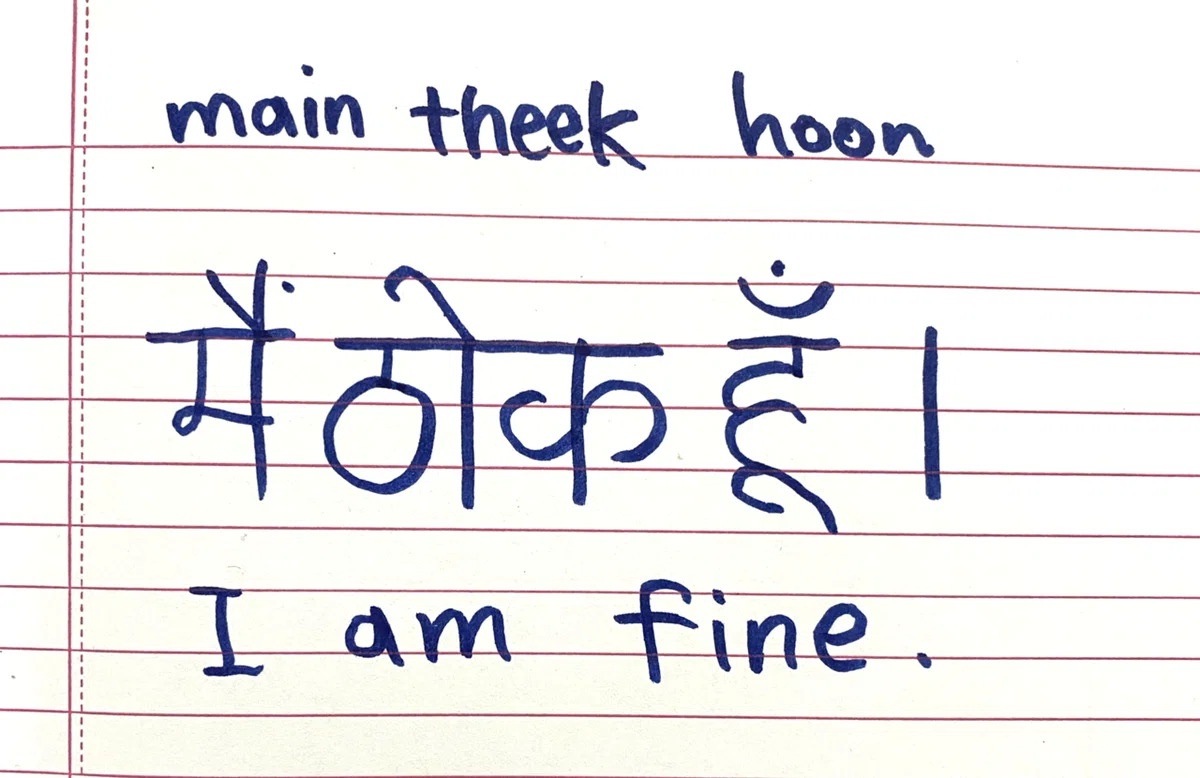 main theek hoon
मैं ठीक हूँ।
I am fine.